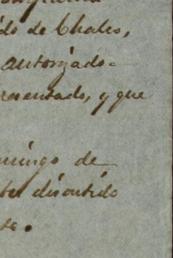 do de Chales,
autorizado=
resentado, y que
mingo de
discutido